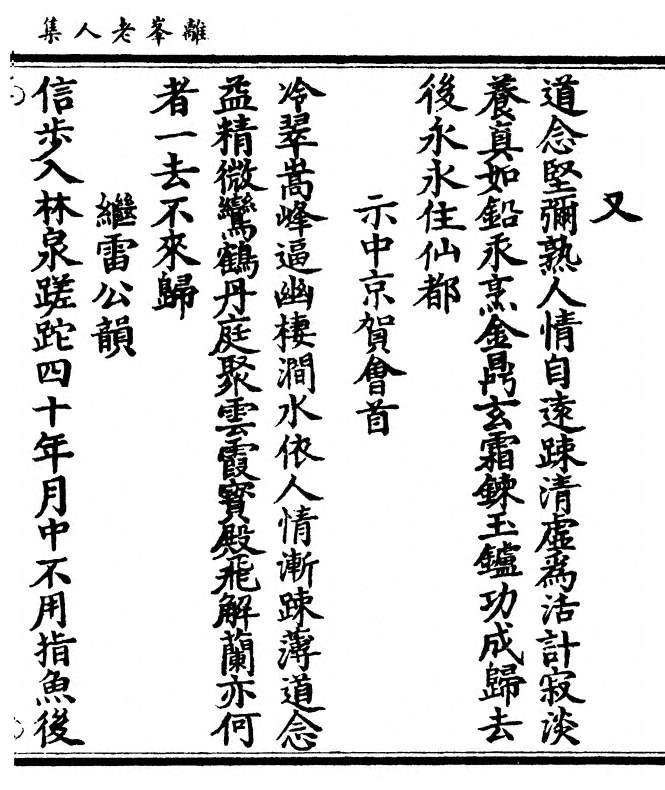 離峯老人集
又
道念堅彌熟人情自遠踈清虛為活計寂淡
養真如鉛汞烹金鼎玄霜鍊玉鑪功成歸去
後永永住仙都
示中京賀會首
冷翠嵩峰逼幽棲澗水依人情漸踈薄道念
益精微鸞鶴丹庭聚雲霞寶殿飛解蘭亦何
者一去不來歸
繼雷公韻
信步入林泉蹉跎四十年月中不用指魚後